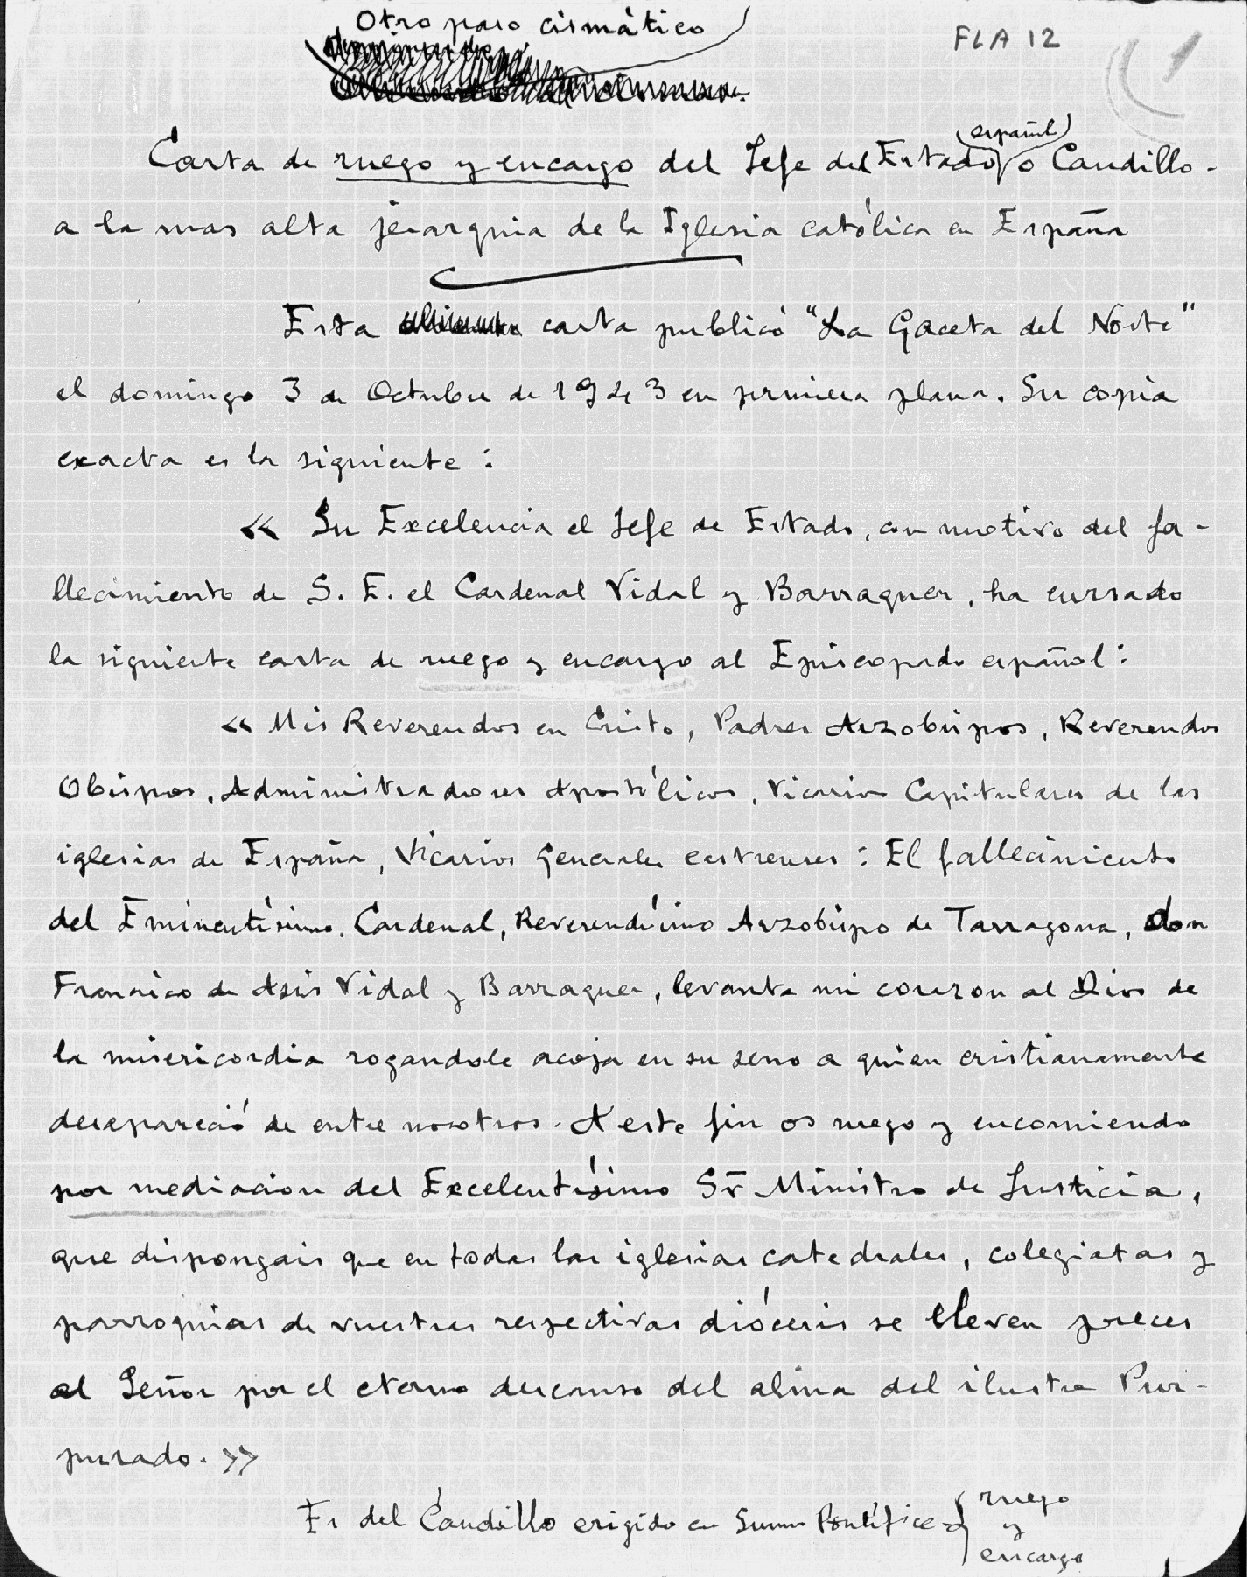 Otro paso cismático
FLA 12
1
(español)
Carta de ruego y encargo del Jefe del Estado o Caudillo -
a la mas alta jerarquia de la Iglesia católica en España
Esta carta publicó "La Gaceta del Norte"
el domingo 3 de Octubre de 1943 en primera plana. Su copia
exacta es la siguiente :
« Su Excelencia el Jefe de Estado, con motivo del fa-
llecimiento de S. E. el Cardenal Vidal y Barraquer, ha cursado
la siguiente carta de ruego y encargo al Episcopado español :
« Mis Reverendos en Cristo, Padres Arzobispos, Reverendos
Obispos, Administradores Apostólicos, Vicarios Capitulares de las
iglesias de España, Vicarios Generales castrenses : El fallecimiento
del Eminentísimo Cardenal, Reverendísimo Arzobispo de Tarragona, don
Francisco de Asis Vidal y Barraquer, levanta mi corazon al Dios de
la misericordia rogandole acoja en su seno a quien cristianamente
desapareció de entre nosotros. A este fin os ruego y encomiendo
por mediacion del Excelentísimo Sr Ministro de Justicia,
que dispongais que en todas las iglesias catedrales, colegiatas y
parroquias de vuestras respectivas diócesis se eleven preces
al Señor por el eterno descanso del alma del ilustre Pur-
purado. »
Es del Caudillo erigido en Sumo Pontífice
ruego
y
encargo